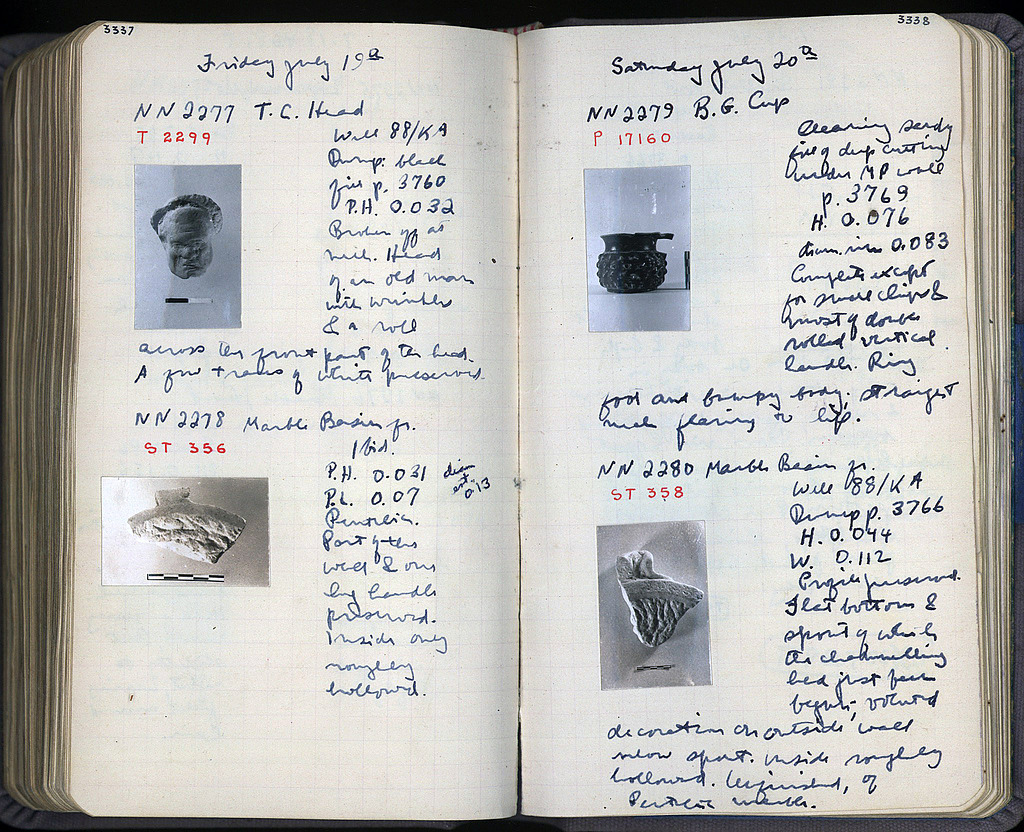 3337
Friday July 19th
NN 2277 T.C. Head
T 2299
Well 88/KA
Dump: black
fill p. 3760
P.H. 0.032
Broken off at
neck. Head
of an old man
with wrinkles
& a roll
across the front part of the head.
A few traces of white preserved.
NN 2278 Marble Basin fr.
ST 356
Ibid.
P.H. 0.031
diam
est.
0.13
P.L. 0.07
Pentelic.
Part of the
wall & one
lug handle
preserved.
Inside only
roughly
hollowed.
3338
Saturday July 20th
NN 2279 B.G. Cup
P 17160
Cleaning sandy
fill of deep cutting
under MP wall
p. 3769
H. 0.076
diam. rim 0.083
Complete except
for small chips &
most of double
rolled vertical
handle. Ring
foot and bumpy body, straight
neck flaring to lip.
NN 2280 Marble Basin fr.
ST 358
Well 88/KA
Dump p. 3766
H. 0.044
W. 0.112
Profile preserved.
Flat bottom &
spout of which
the channelling
had just been
begun; voluted
decoration on outside wall
below spout. Inside roughly
hollowed. Unfinished, of
Pentelic marble.